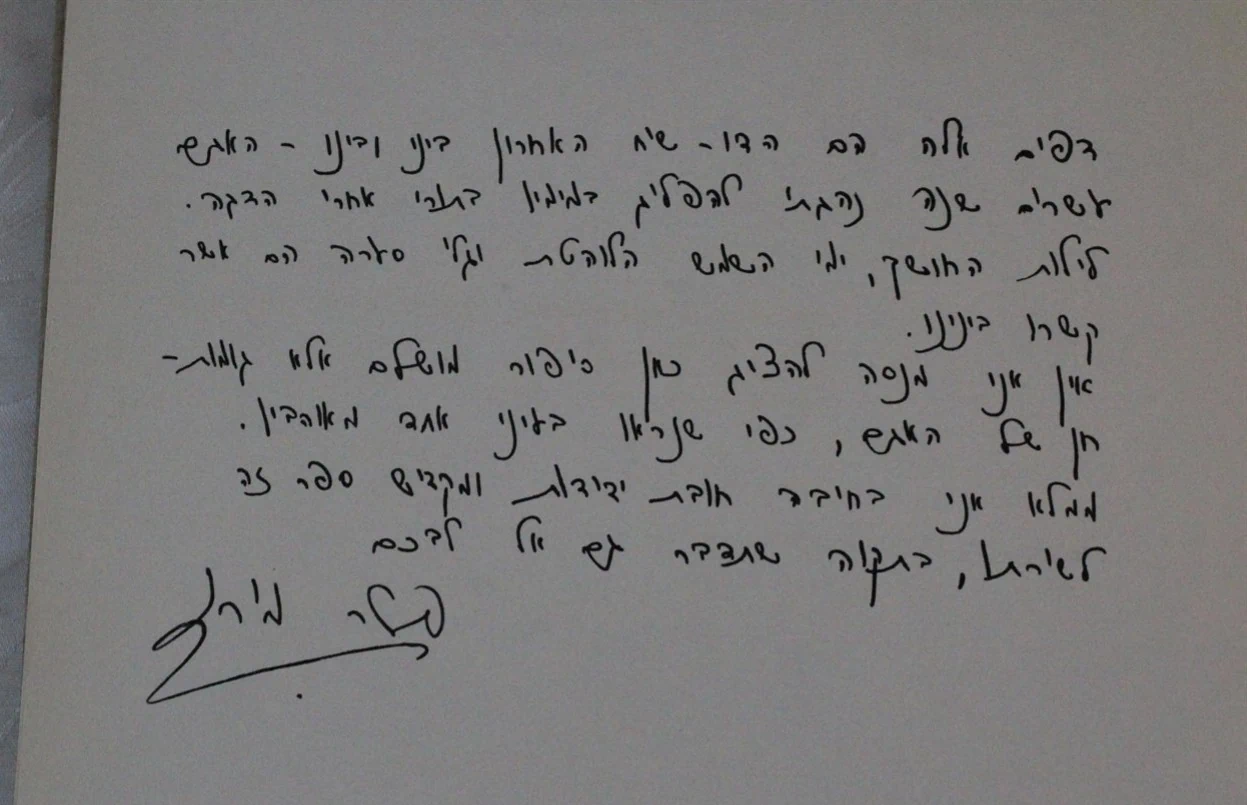 דפים אלה הם הדו-שיח האחרון ביני ובינו - האגם
עשרים שנה נהגתי להפליג במימיו בתורי אחרי הדקה.
לילות החושך, ימי השמש הלוהטת וגלי סערה הם אשר
קשרו בינינו.
אין אני מנסה להציג כאן סיפור מושלם אלא גומות-
חן של האגם, כפי שנראו בעיני אחד מאוהביו.
ממלא אני בחיבה חובת ידידות ומקדיש ספר זה
לשירתו, בתקוה שתדבר גם אל לבכם
מירק